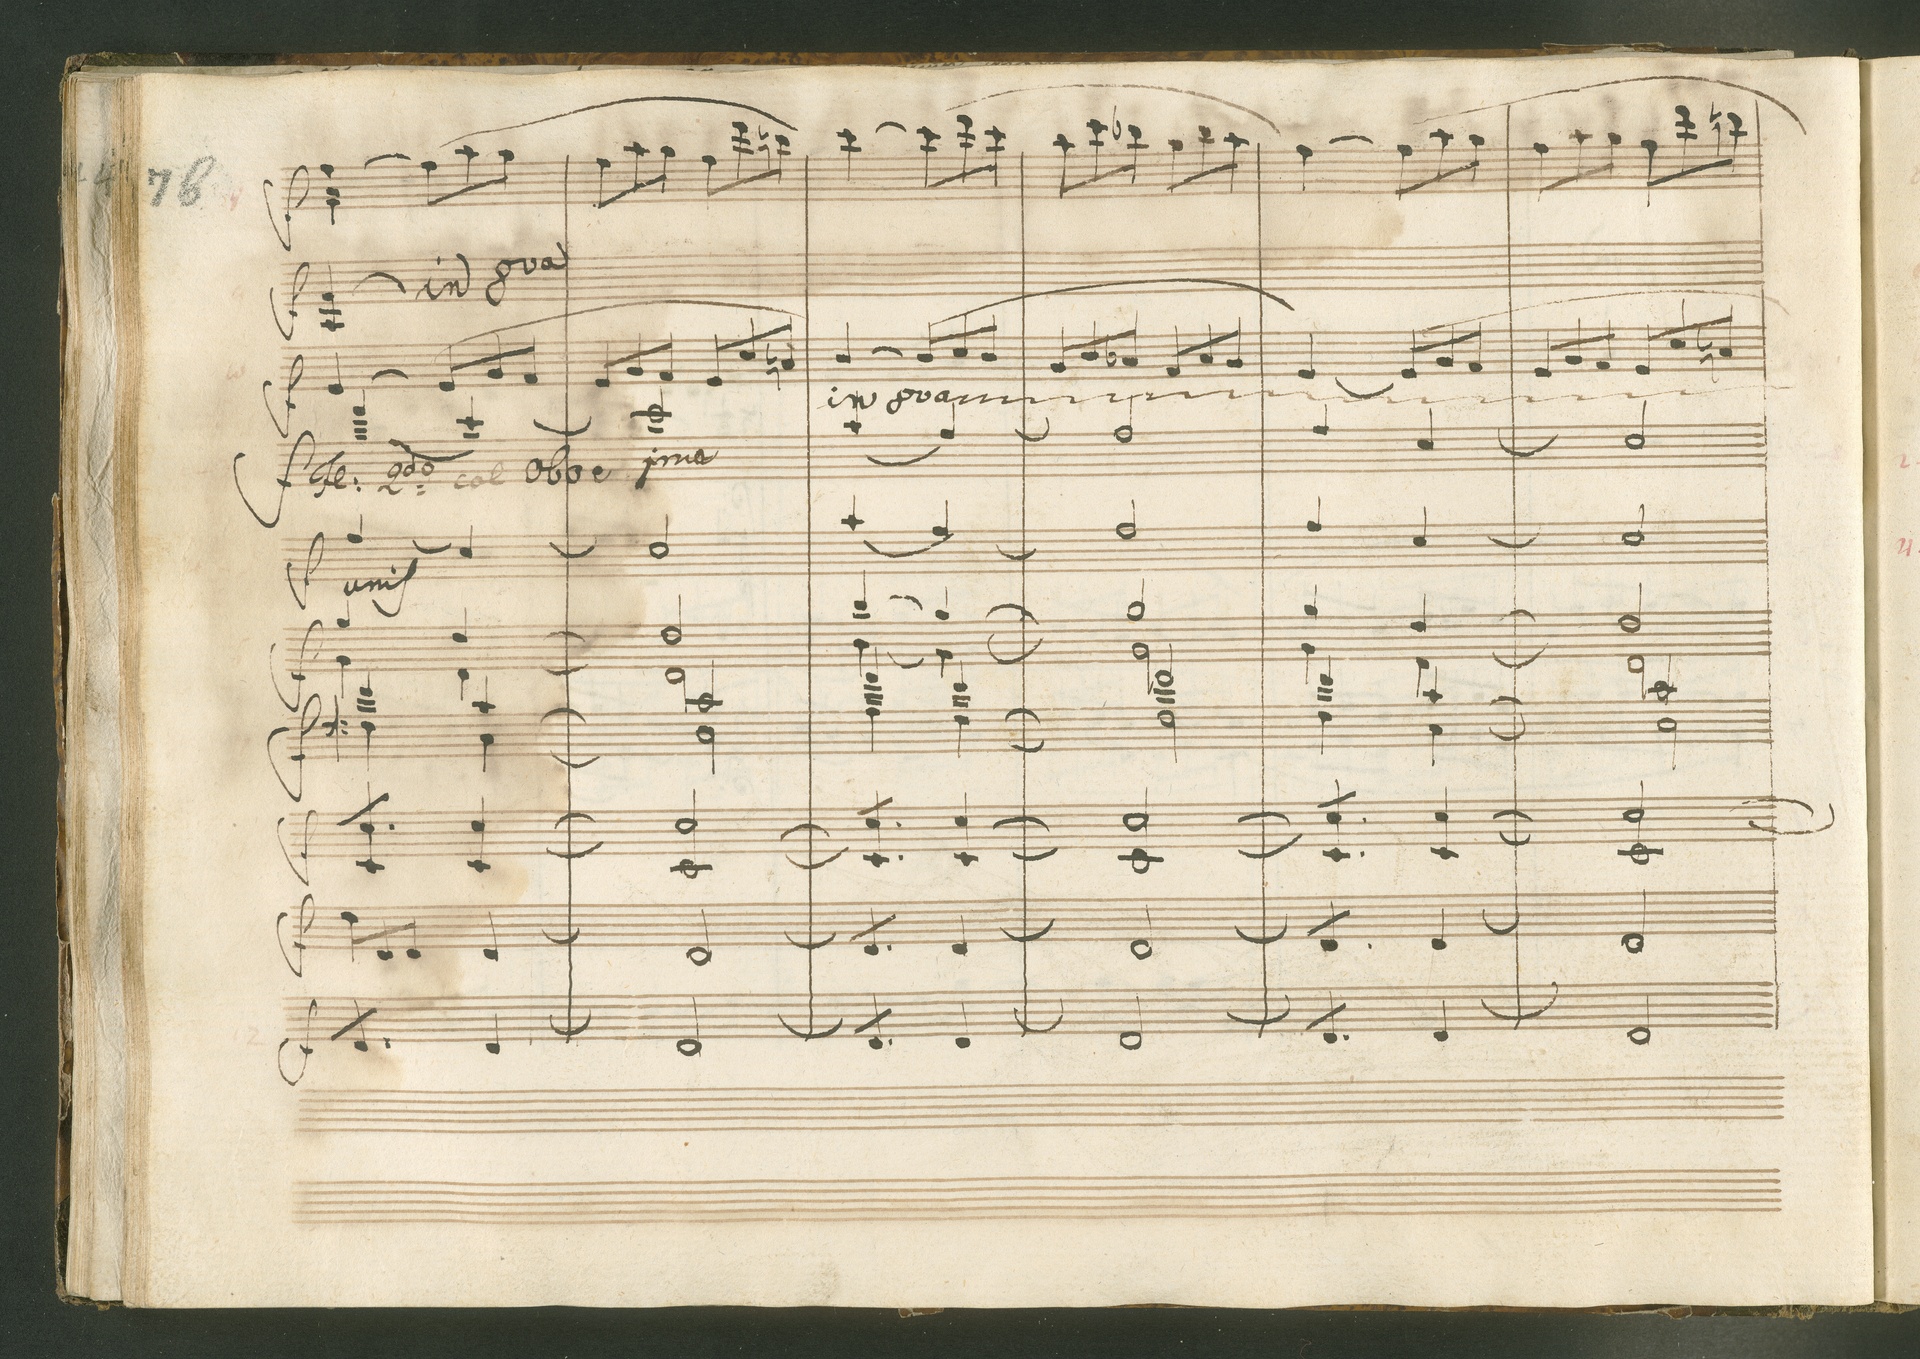 78
in 8va
in 8va
Fl: 2do col Oboe imo
unis